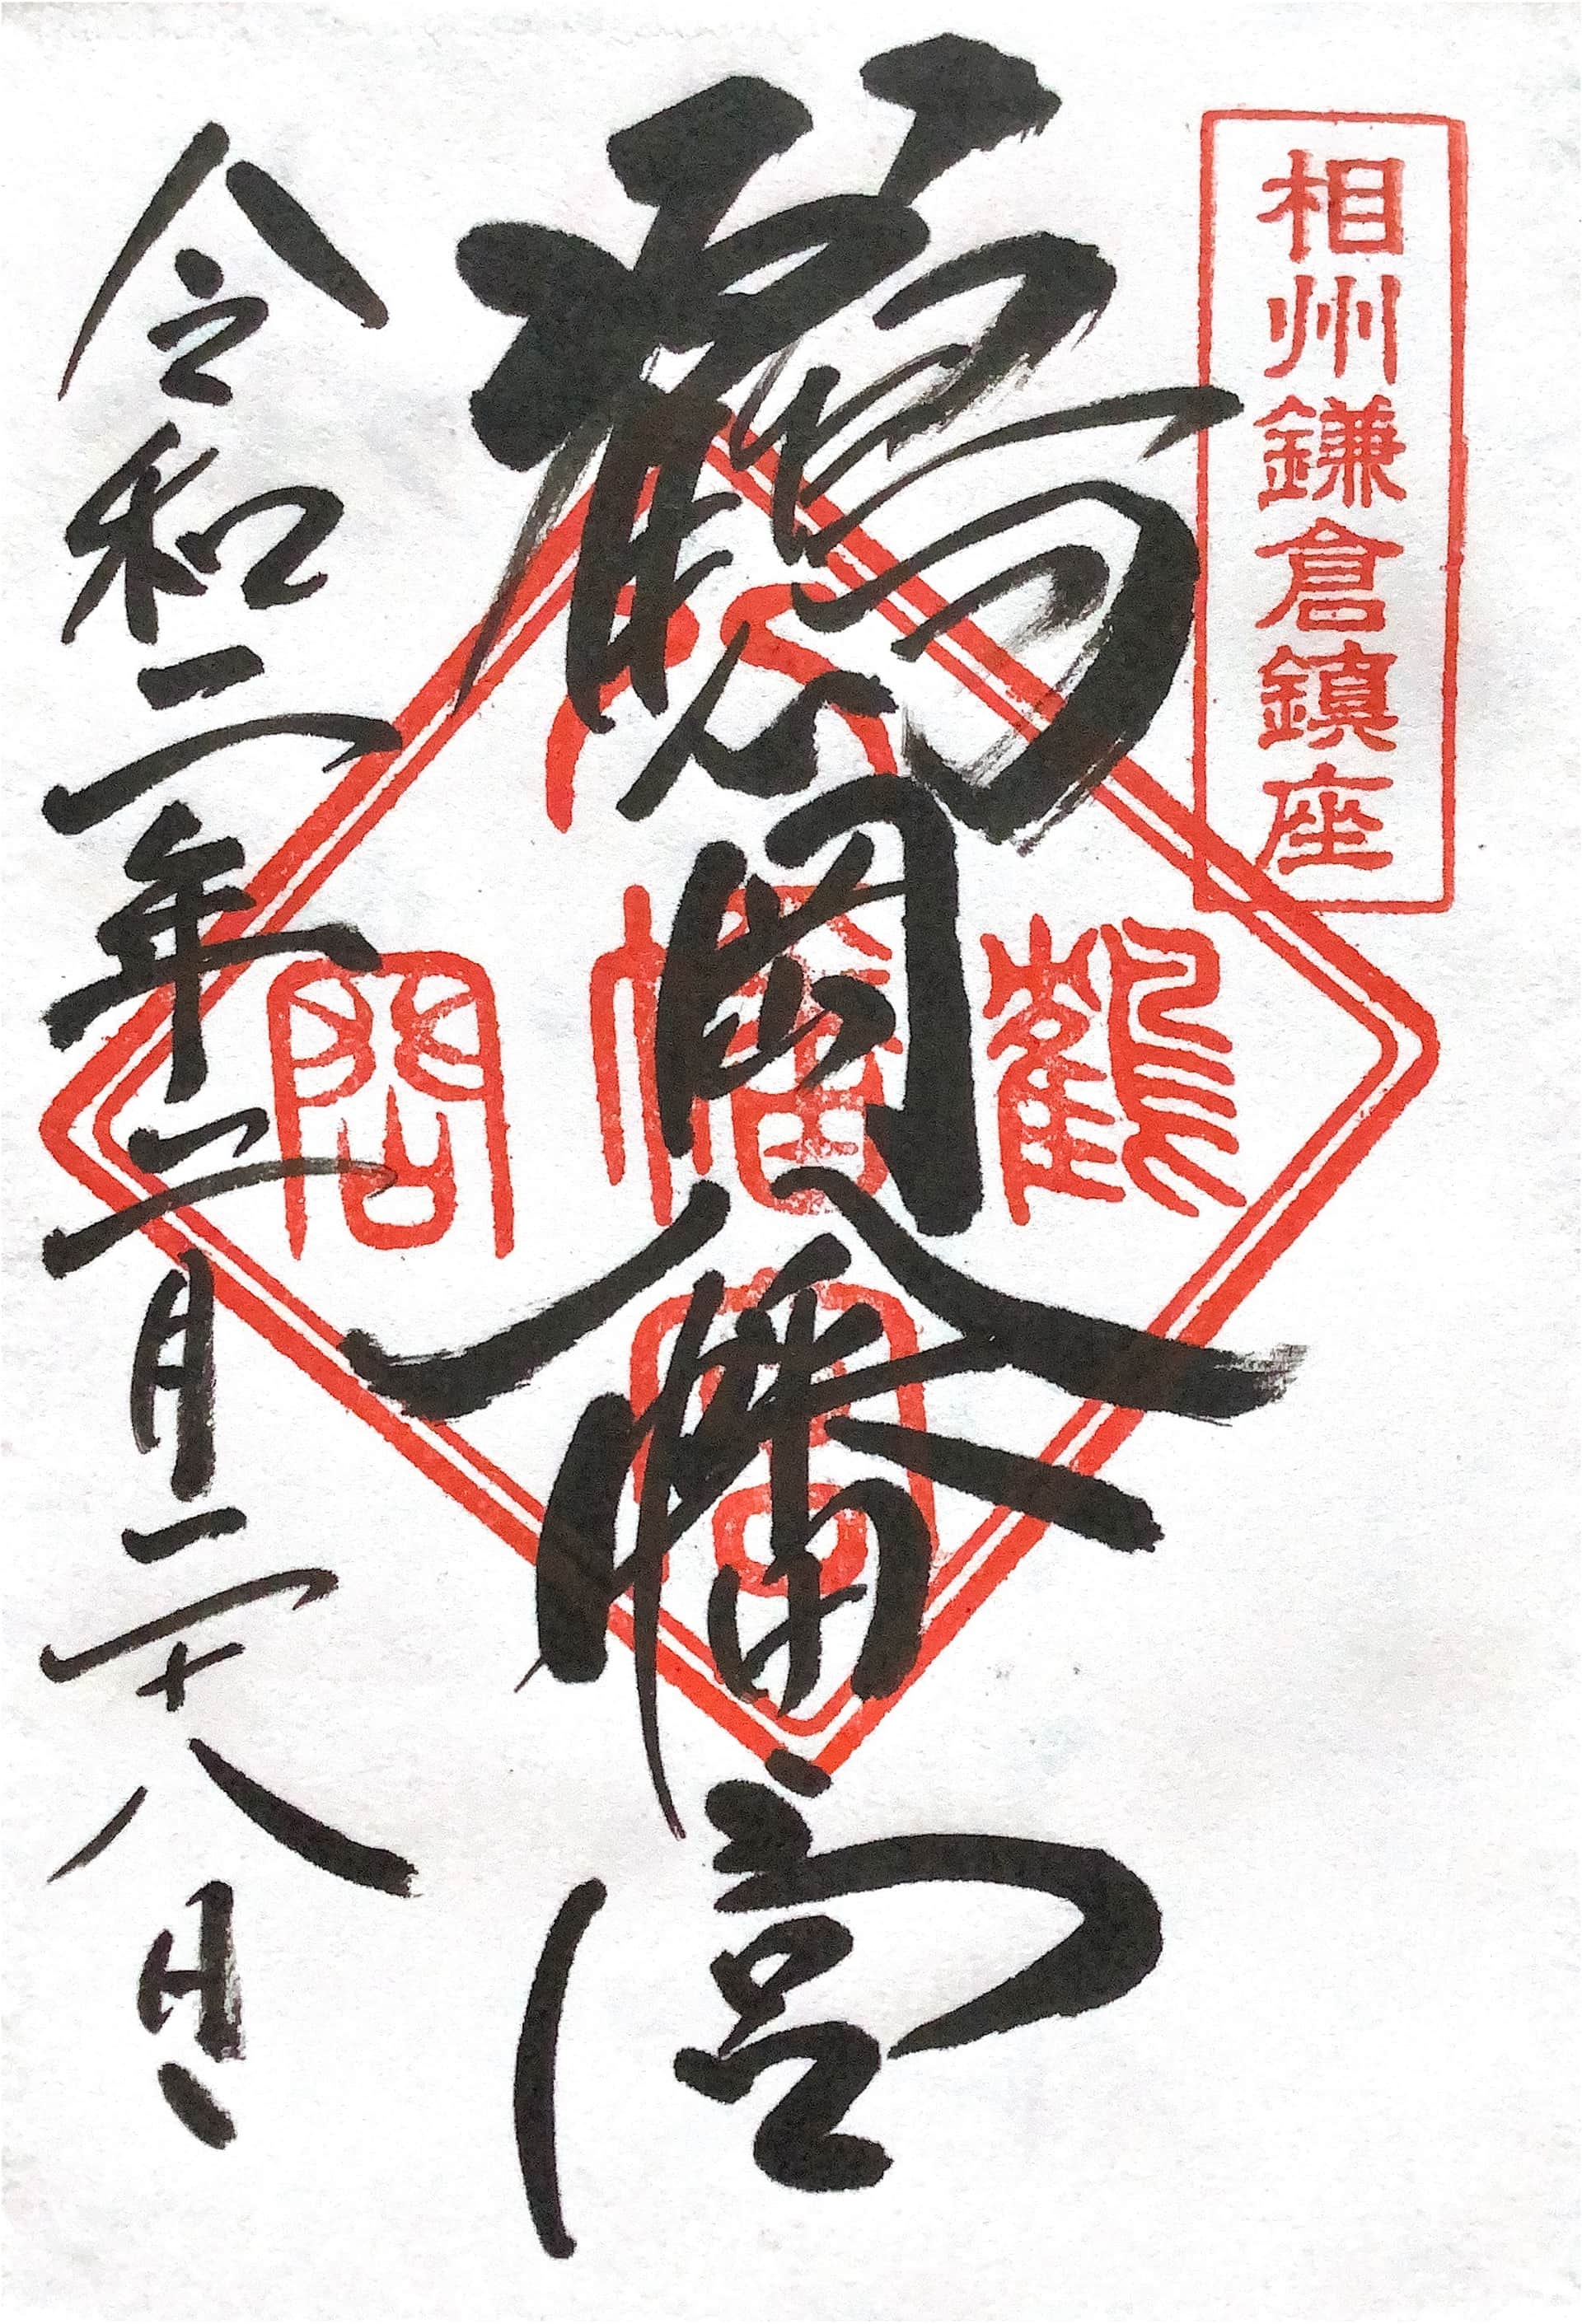 相州鎌倉鎮座
鶴岡八幡宮
令和二年二月二十八日
鶴岡
八幡宮